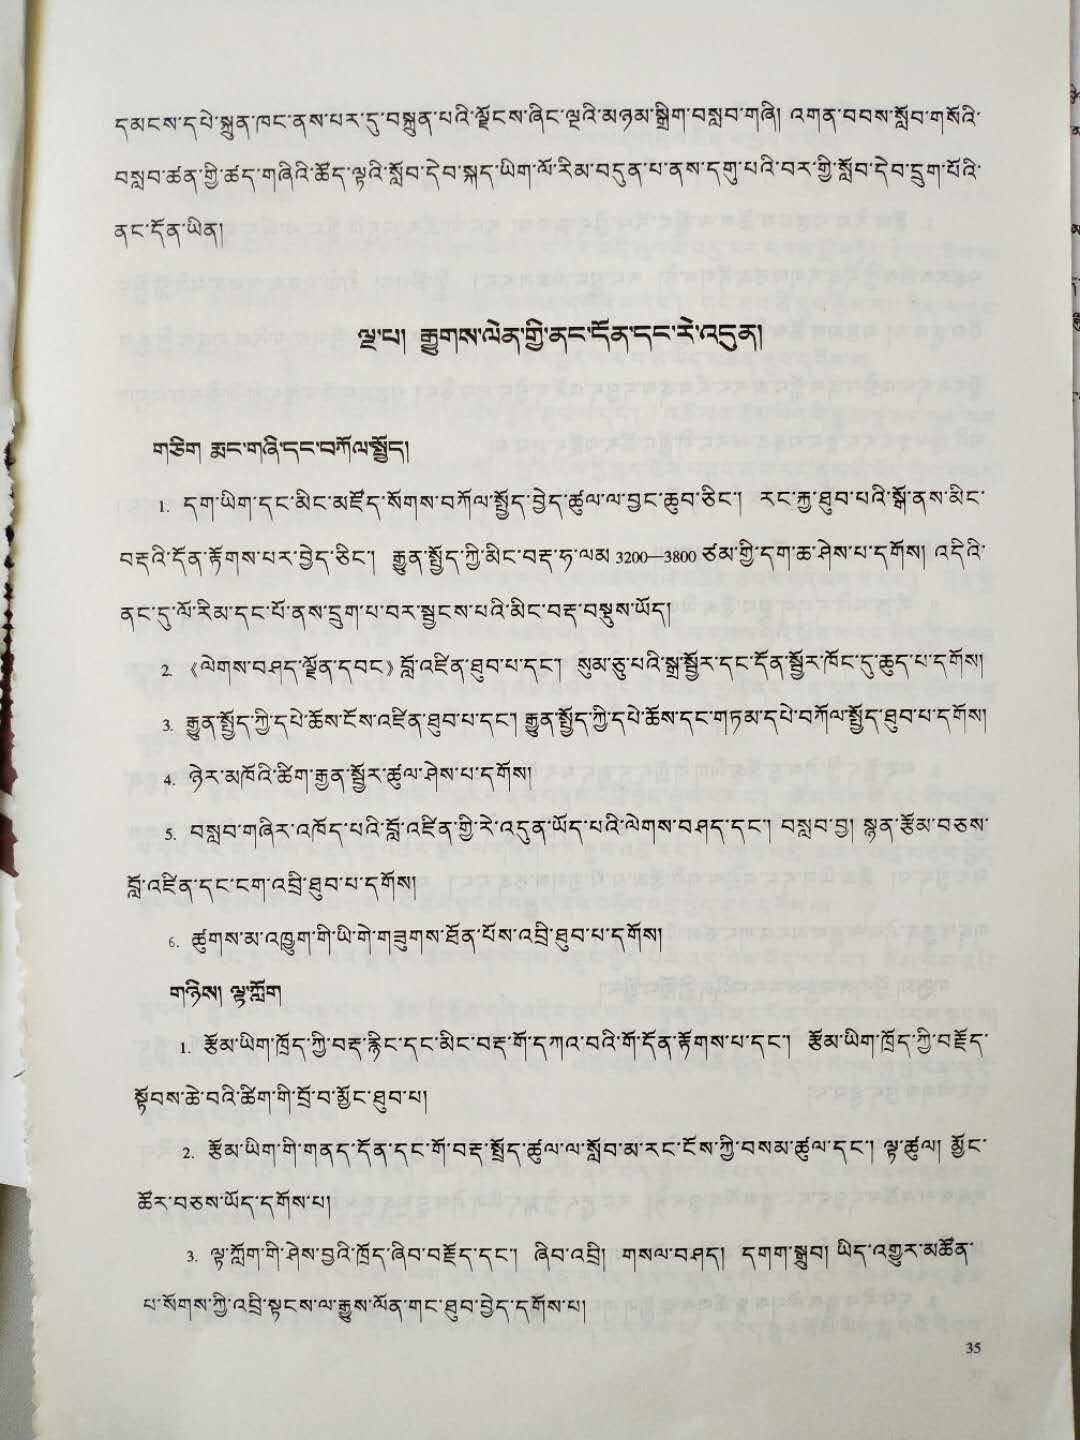 དམངས་དཔེ་སྐྲུན་ཁང་ནས་པར་དུ་བསྐྲུན་པའི་ལྗོངས་ཞིང་ལྔའི་མཉམ་སྒྲིག་བསླབ་གཞི། འགན་བབས་སློབ་གསོའི་
བསླབ་ཚན་གྱི་ཚད་གཞིའི་ཚོད་ལྟའི་སློབ་དེབ་སྐད་ཡིག་ལོ་རིམ་བདུན་པ་ནས་དགུ་པའི་བར་གྱི་སློབ་དེབ་དྲུག་པོའི་
ནང་དོན་ཡིན།
ལྔ་པ། རྒྱུགས་ལེན་གྱི་ནང་དོན་དང་རེ་འདུན།
གཅིག རྨང་གཞི་དང་བཀོལ་སྤྱོད།
1. དག་ཡིག་དང་མིང་མཛོད་སོགས་བཀོལ་སྤྱོད་བྱེད་ཚུལ་ལ་བྱང་ཆུབ་ཅིང་། རང་རྐྱ་ཐུབ་པའི་སྒོ་ནས་མིང་
བརྡའི་དོན་རྟོགས་པར་བྱེད་ཅིང་། རྒྱུན་སྤྱོད་ཀྱི་མིང་བརྡ་ཧ་ལམ 3200—3800 ཙམ་གྱི་དག་ཆ་ཤེས་པ་དགོས། འདིའི་
ནང་དུ་ལོ་རིམ་དང་པོ་ནས་དྲུག་པ་བར་སྦྱངས་པའི་མིང་བརྡ་བསྡུས་ཡོད།
2. 《ལེགས་བཤད་ལྗོན་དབང》བློ་འཛིན་ཐུབ་པ་དང་། སུམ་ཅུ་པའི་སྒྲ་སྦྱོར་དང་དོན་སྦྱོར་ཁོང་དུ་ཆུད་པ་དགོས།
3. རྒྱུན་སྤྱོད་ཀྱི་དཔེ་ཆོས་ངོས་འཛིན་ཐུབ་པ་དང་། རྒྱུན་སྤྱོད་ཀྱི་དཔེ་ཆོས་དང་གཏམ་དཔེ་བཀོལ་སྤྱོད་ཐུབ་པ་དགོས།
4. ཉེར་མཁོའི་ཚིག་རྒྱན་སྦྱོར་ཚུལ་ཤེས་པ་དགོས།
5. བསླབ་གཞིར་འཁོད་པའི་བློ་འཛིན་གྱི་རེ་འདུན་ཡོད་པའི་ལེགས་བཤད་དང་། བསླབ་བྱ། སྙན་རྩོམ་བཅས་
བློ་འཛིན་དང་ངག་འབྲི་ཐུབ་པ་དགོས།
6. ཚུགས་མ་འཁྱུག་གི་ཡི་གེ་གཟུགས་ཐོན་པོས་འབྲི་ཐུབ་པ་དགོས།
གཉིས། ལྟ་ཀློག
1. རྩོམ་ཡིག་ཁྲོད་ཀྱི་བརྡ་རྙིང་དང་མིང་བརྡ་གོ་དཀའ་བའི་གོ་དོན་རྟོགས་པ་དང་། རྩོམ་ཡིག་ཁྲོད་ཀྱི་བརྗོད་
སྟོབས་ཆེ་བའི་ཚིག་གི་བྲོ་བ་མྱོང་ཐུབ་པ།
2. རྩོམ་ཡིག་གི་གནད་དོན་དང་གོ་བརྡ་སྤྲོད་ཚུལ་ལ་སློབ་མ་རང་ངོས་ཀྱི་བསམ་ཚུལ་དང་། ལྟ་ཚུལ། མྱོང་
ཚོར་བཅས་ཡོད་དགོས་པ།
3. ལྟ་ཀློག་གི་ཤེས་བྱའི་ཁྲོད་ཞིབ་བརྗོད་དང་། ཞིབ་འབྲི། གསལ་བཤད། དགག་སྒྲུབ། ཡིད་འགྱུར་མཚོན་
པ་སོགས་ཀྱི་འབྲི་སྟངས་ལ་རྒྱུས་ལོན་གང་ཐུབ་བྱེད་དགོས་པ།
35